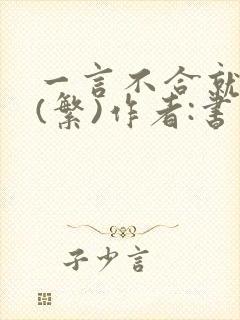 一言不合就
(繁)作者:書
子少言